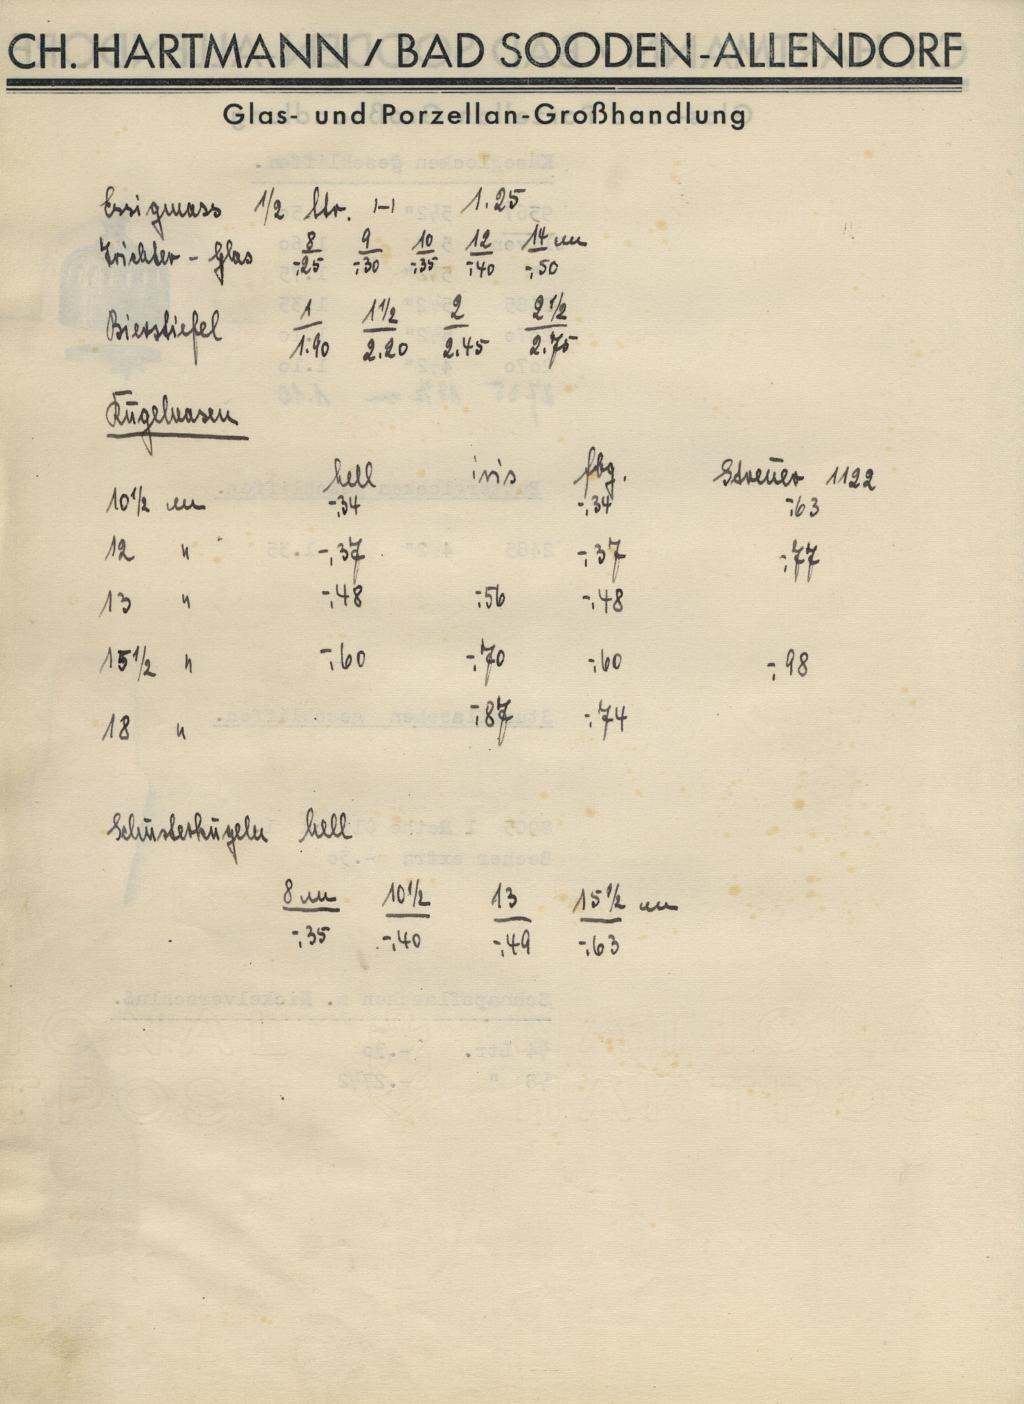 CH. HARTMANN / BAD SOODEN-ALLENDORF
Glas- und Porzellan-Großhandlung
Essigmass 1/2 ltr. H 1.25
Trichter - Glas 8 9 10 12 14 cm
-,25 -,30 -,35 -,40 -,50
Bierstiefel 1 1 1/2 2 2 1/2
1.90 2.20 2.45 2.75
Kugelvasen
hell iris fbg. Streuer 1122
10 1/2 cm -,34 -,34 -,63
12 " -,37 -,37 -,77
13 " -,48 -,56 -,48
15 1/2 " -,60 -,70 -,60 -,98
18 " -,87 -,74
Schusterkugeln hell
8 cm 10 1/2 13 15 1/2 cm
-,35 -,40 -,49 -,63